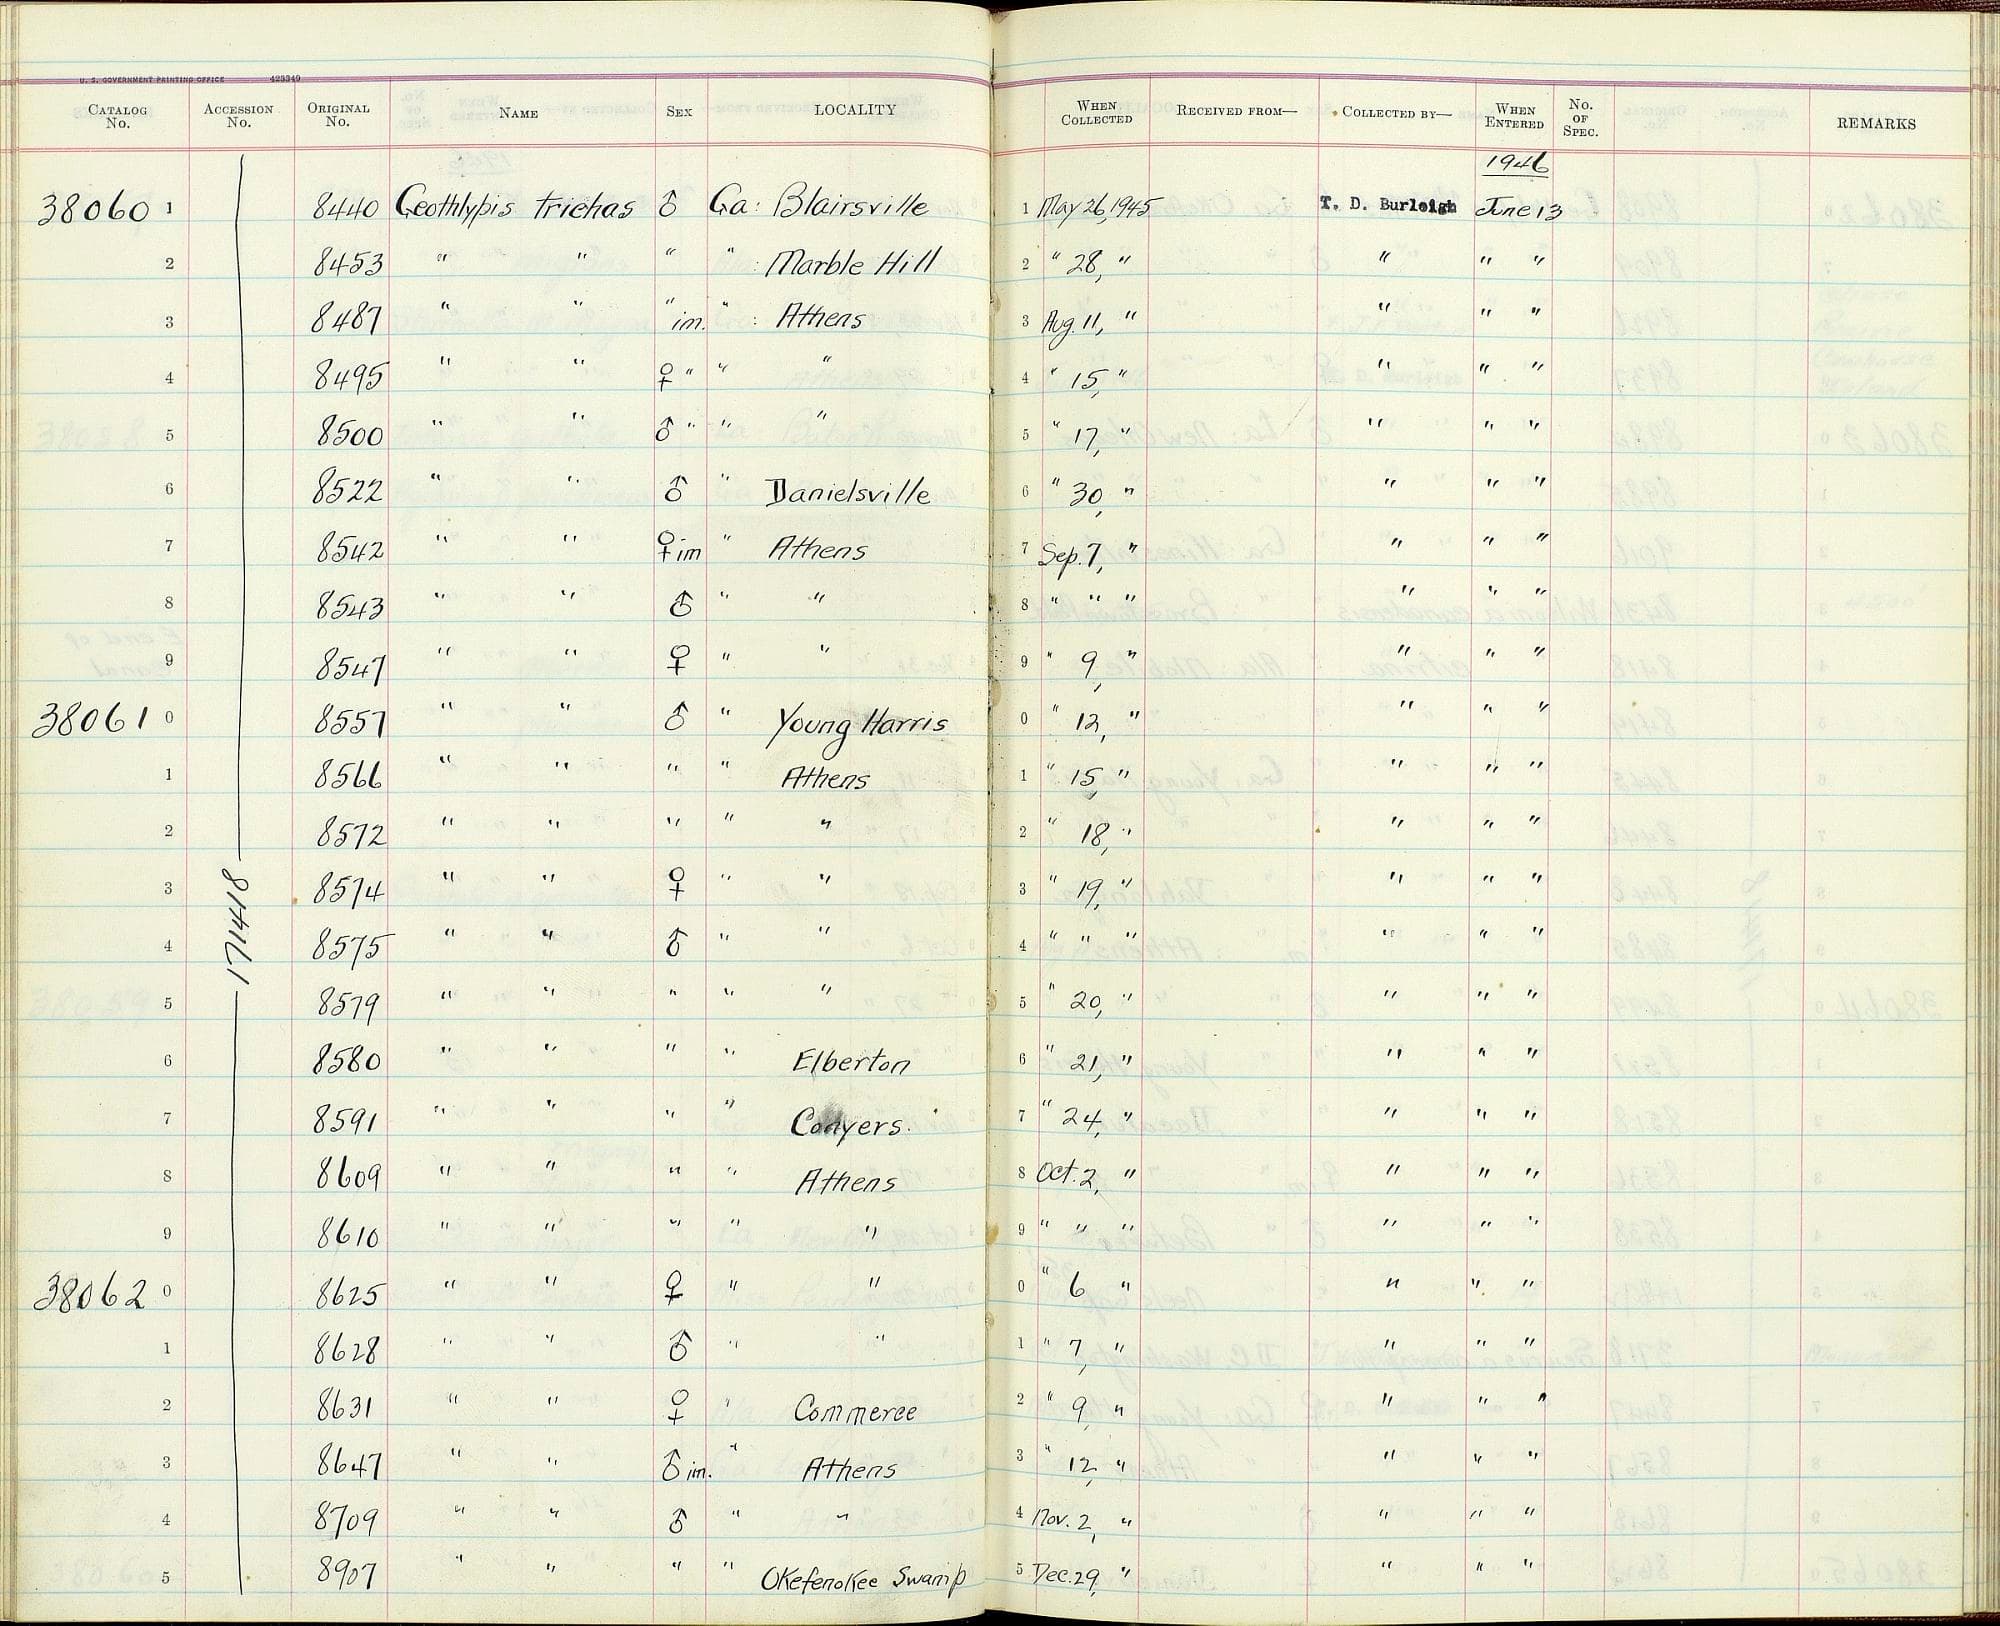 U. S. GOVERNMENT PRINTING OFFICE 423349
CATALOG No. ACCESSION No. ORIGINAL No. NAME SEX LOCALITY WHEN COLLECTED RECEIVED FROM— COLLECTED BY— WHEN ENTERED No. OF SPEC. REMARKS
1946
38060 1 8440 Geothlypis trichas ♂ Ga: Blairsville 1 May 26, 1945 T. D. Burleigh June 13
2 8453 " " " " Marble Hill 2 " 28, " " " "
3 8487 " " " im. " : Athens 3 Aug. 11, " " " "
4 8495 " " ♀ " " " 4 " 15, " " " "
5 8500 " " ♂ " " " 5 " 17, " " " "
6 8522 " " ♂ " Danielsville 6 " 30, " " " "
7 8542 " " ♀ im " Athens 7 Sep. 7, " " " "
8 8543 " " ♂ " " 8 " " " " " "
9 8547 " " ♀ " " 9 " 9, " " " "
38061 0 8557 " " ♂ " Young Harris 0 " 12, " " " "
1 8566 " " " " Athens 1 " 15, " " " "
2 8572 " " " " " 2 " 18, " " " "
171418 3 8574 " " ♀ " " 3 " 19, " " " "
4 8575 " " ♂ " " 4 " " " " " "
5 8579 " " " " " 5 " 20, " " " "
6 8580 " " " " Elberton 6 " 21, " " " "
7 8591 " " " " Conyers. 7 " 24, " " " "
8 8609 " " " " Athens 8 Oct. 2, " " " "
9 8610 " " " " " 9 " " " " " "
38062 0 8625 " " ♀ " " 0 " 6 " " " "
1 8628 " " ♂ " " 1 " 7, " " " "
2 8631 " " ♀ " Commerce 2 " 9, " " " "
3 8647 " " ♂ im. " Athens 3 " 12, " " " "
4 8709 " " ♂ " " 4 Nov. 2, " " " "
5 8907 " " " " Okefenokee Swamp 5 Dec. 29, " " " "